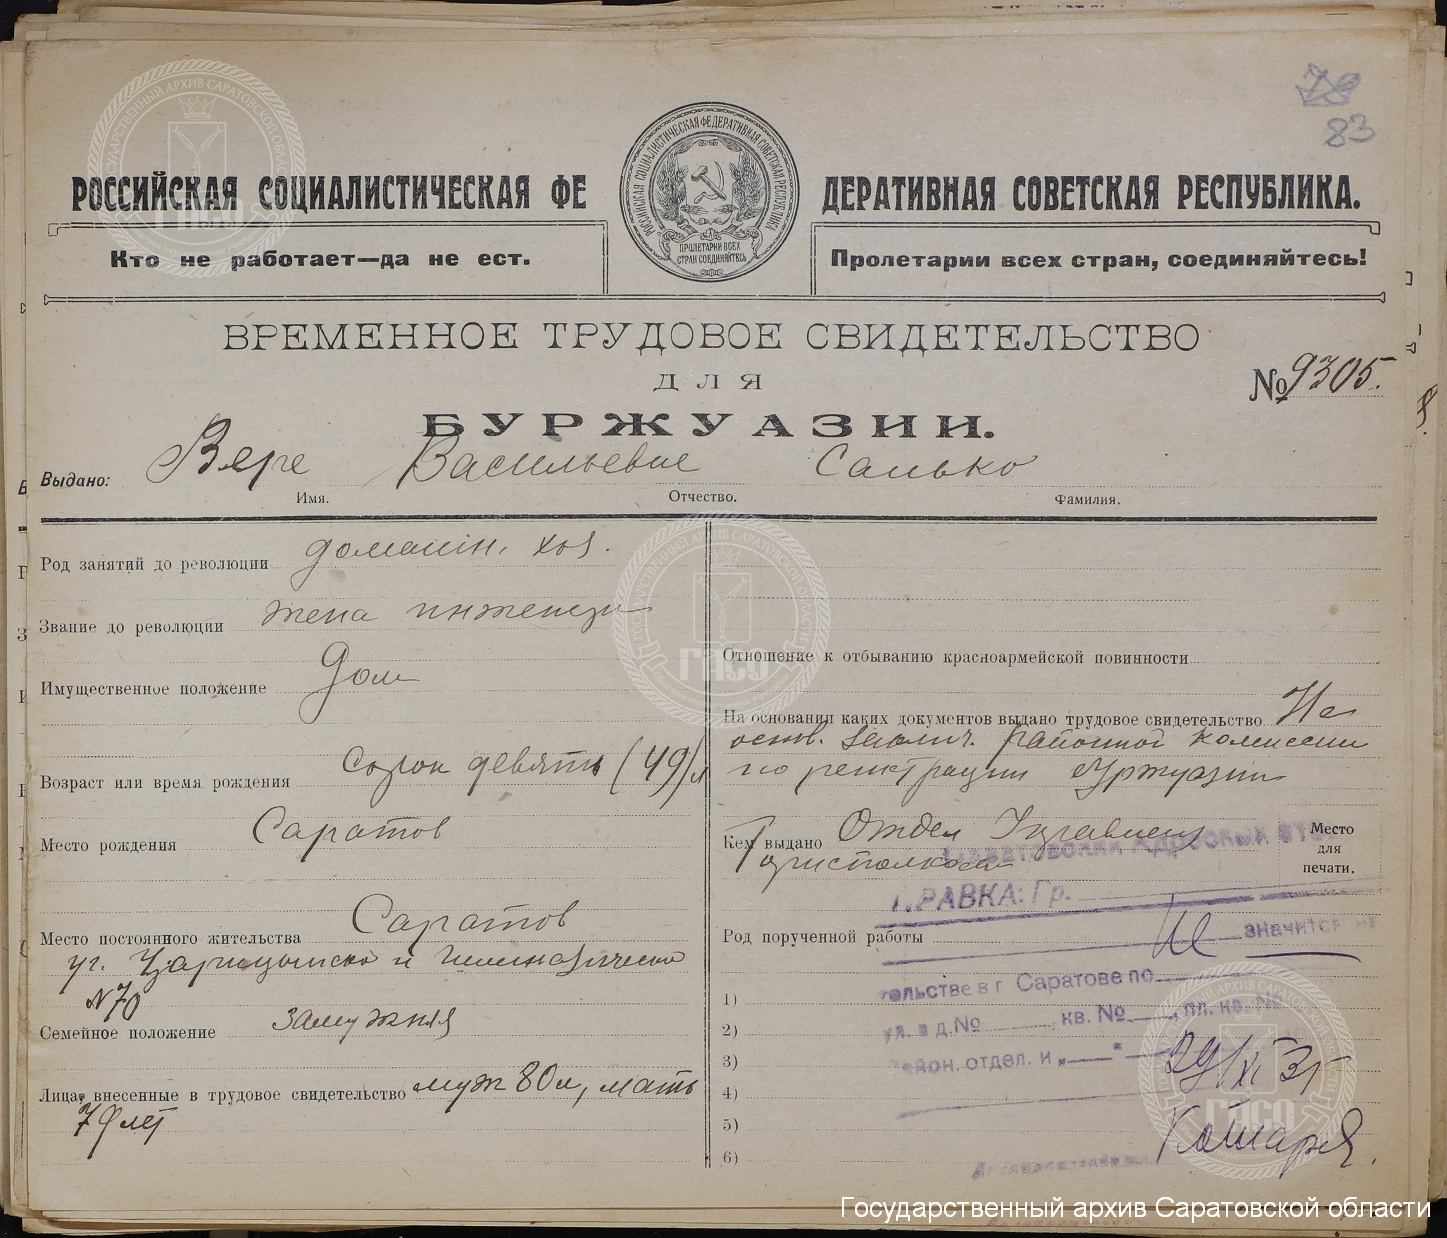 78
83
РОССИЙСКАЯ СОЦИАЛИСТИЧЕСКАЯ ФЕДЕРАТИВНАЯ СОВЕТСКАЯ РЕСПУБЛИКА.
РОССИЙСКАЯ СОЦИАЛИСТИЧЕСКАЯ ФЕДЕРАТИВНАЯ СОВЕТСКАЯ РЕСПУБЛИКА
ПРОЛЕТАРИИ ВСЕХ
СТРАН СОЕДИНЯЙТЕСЬ
Кто не работает—да не ест.
Пролетарии всех стран, соединяйтесь!
ВРЕМЕННОЕ ТРУДОВОЕ СВИДЕТЕЛЬСТВО
ДЛЯ
№ 9305.
БУРЖУАЗИИ.
Выдано: Вере Васильевне Санько
Имя. Отчество. Фамилия.
Род занятий до революции домашн. хоз.
Звание до революции жена инженера
Имущественное положение Дом
Возраст или время рождения сорок девять (49) л
Место рождения Саратов
Место постоянного жительства Саратов
уг. Царицынской и
№ 70
Семейное положение замужняя
Лица, внесенные в трудовое свидетельство муж 80 л, мать
79 лет
Отношение к отбыванию красноармейской повинности
На основании каких документов выдано трудовое свидетельство На
основ. районной комиссии
по регистрации буржуазии
Кем выдано Отдел Управлен
Горисполкома
Место
для
печати.
Саратовский Адресный СТО
РАВКА: Гр.
Род порученной работы
не значится на
тельстве в г Саратове по
ул. в д. № , кв. № , пл. кв. №
район. отдел. и
1)
2)
3)
4)
5)
6)
29/XI 31
ГОСУДАРСТВЕННЫЙ АРХИВ САРАТОВСКОЙ ОБЛАСТИ
ГАСО
Государственный архив Саратовской области